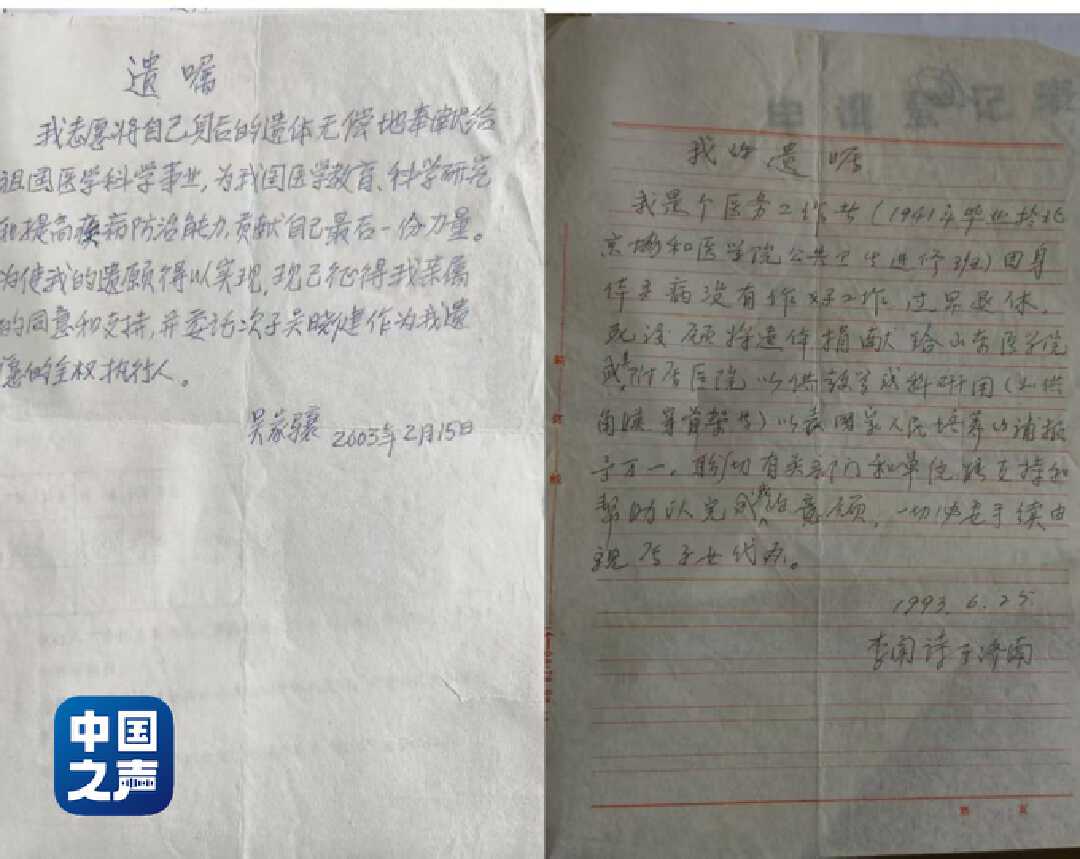 遗嘱
我志愿将自己身后的遗体无偿地奉献给
祖国医学科学事业,为我国医学教育、科学研究
和提高疾病防治能力,贡献自己最后一份力量。
为使我的遗愿得以实现,现已征得我亲属
的同意和支持,并委托次子吴晓健作为我遗
愿的全权执行人。
吴家骧 2003年2月15日
中国
之声
我的遗嘱
我是个医务工作者(1941年毕业于北
京协和医学院公共卫生进修班)因身
体多病没有作好工作,过早退休。
死后愿将遗体捐献给山东医学院
或其附属医院以供教学或科研用(如供
角膜 等)以表国家人民培养的
于万一。盼切有关部门和单位 支持和
帮助以完成我的意愿,一切必要手续由
亲属子女代办。
1993.6.25
李闺诗于济南